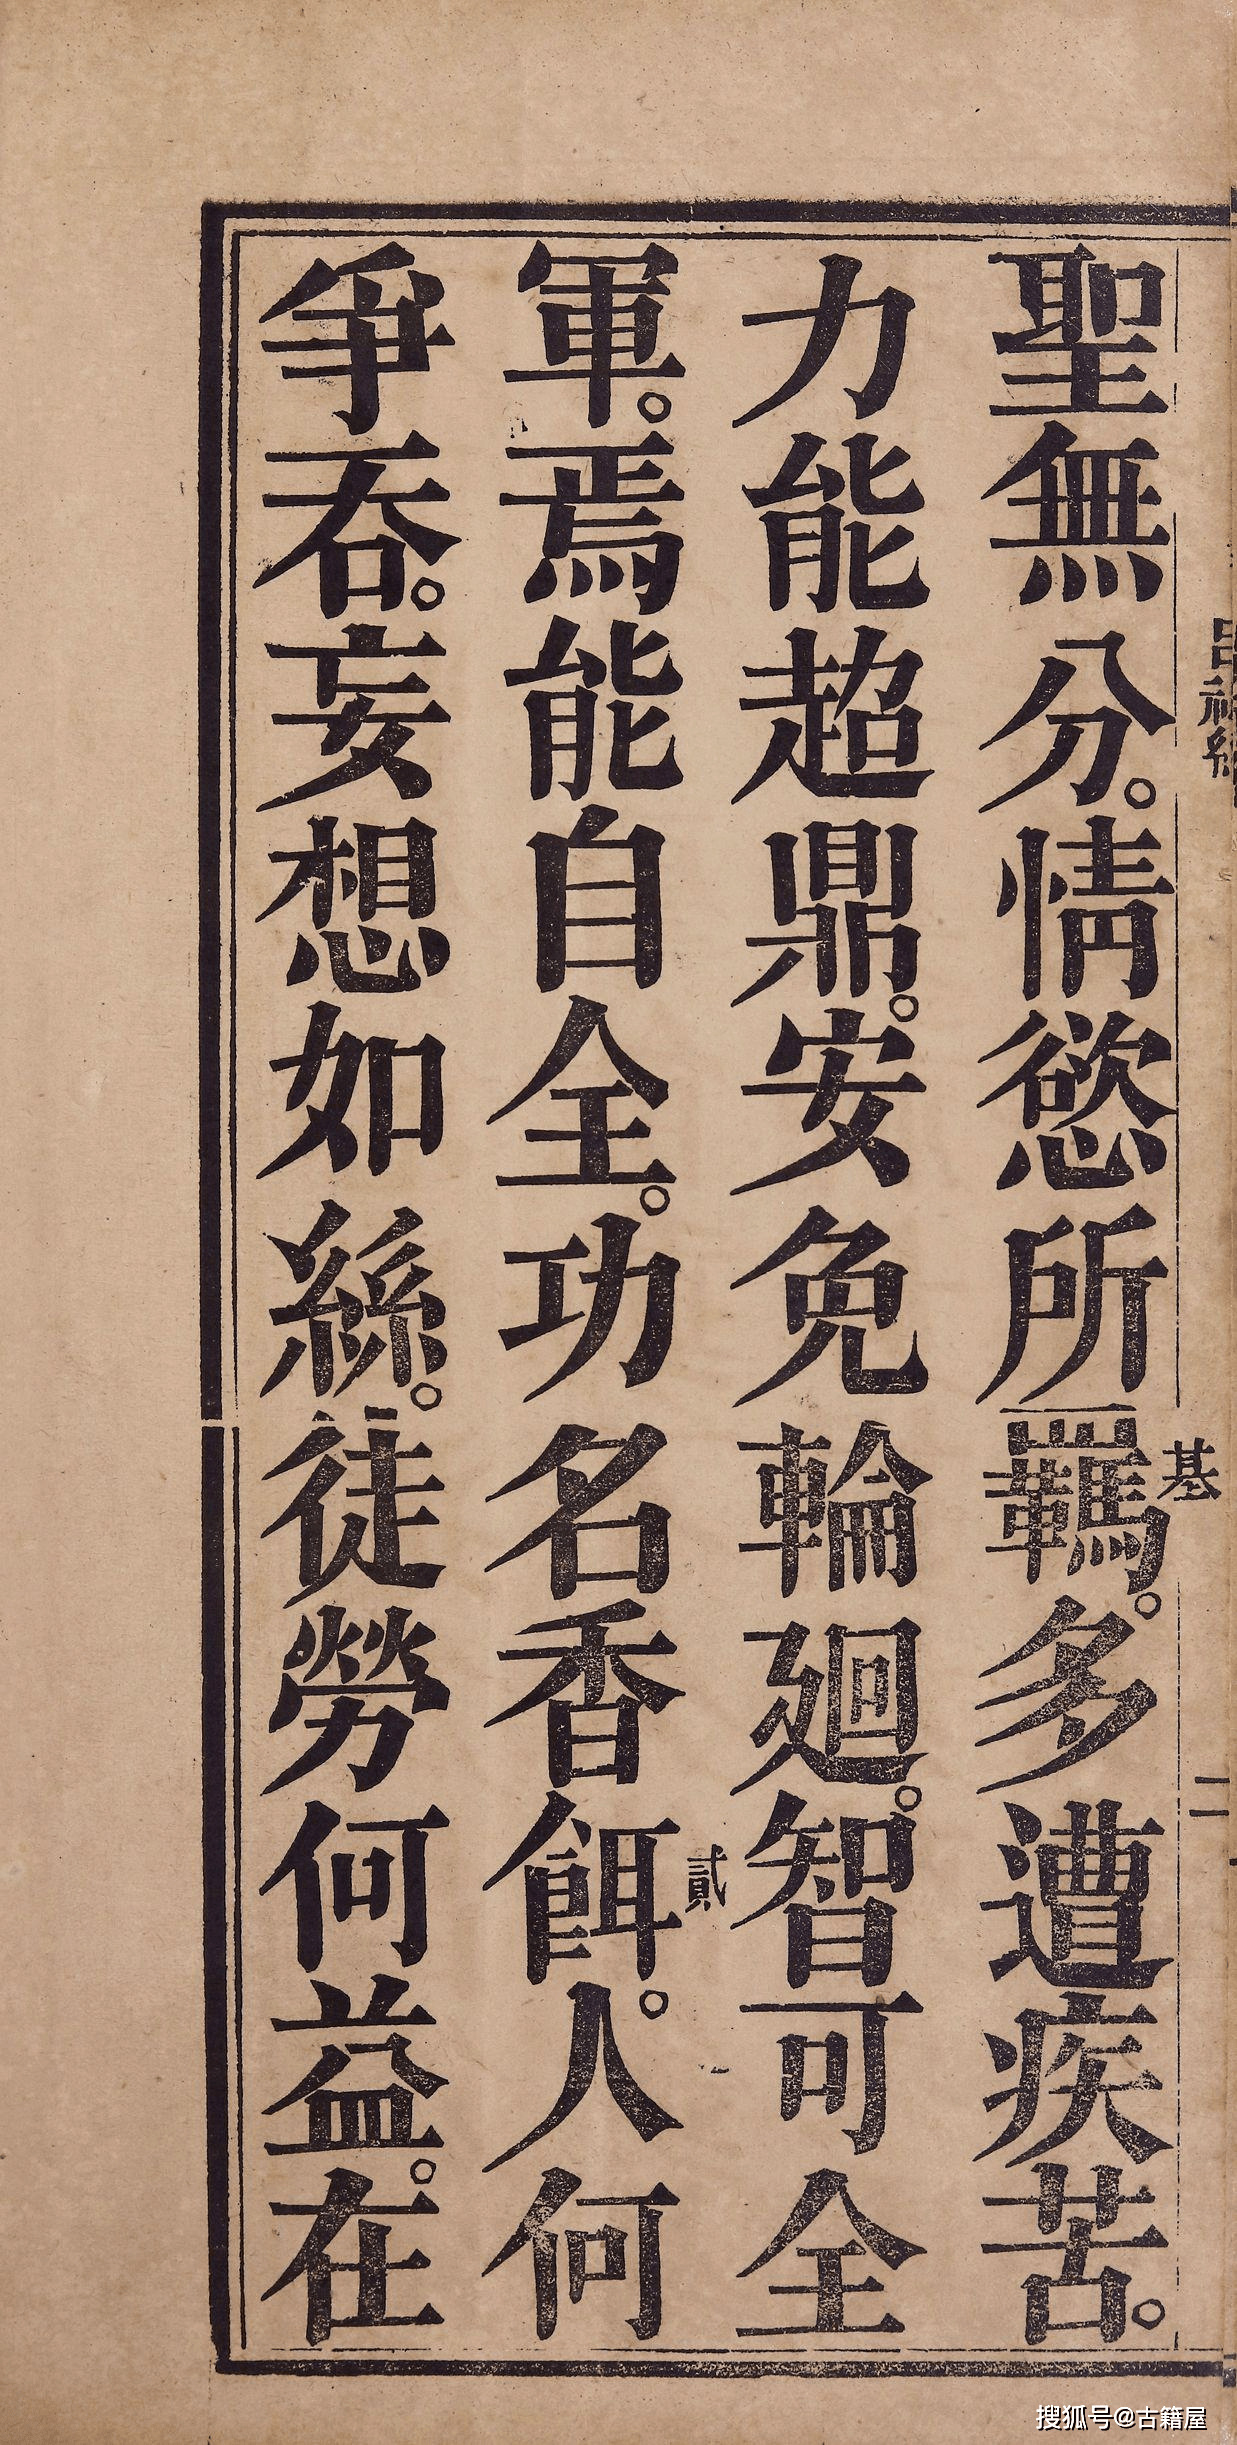 聖無分。情慾所羈。多遭疾苦。
力能超鼎。安免輪廻。智可全
軍。焉能自全。功名香餌。人何
爭吞。妄想如絲。徒勞何益。在
基
二
貳
搜狐号@古籍屋